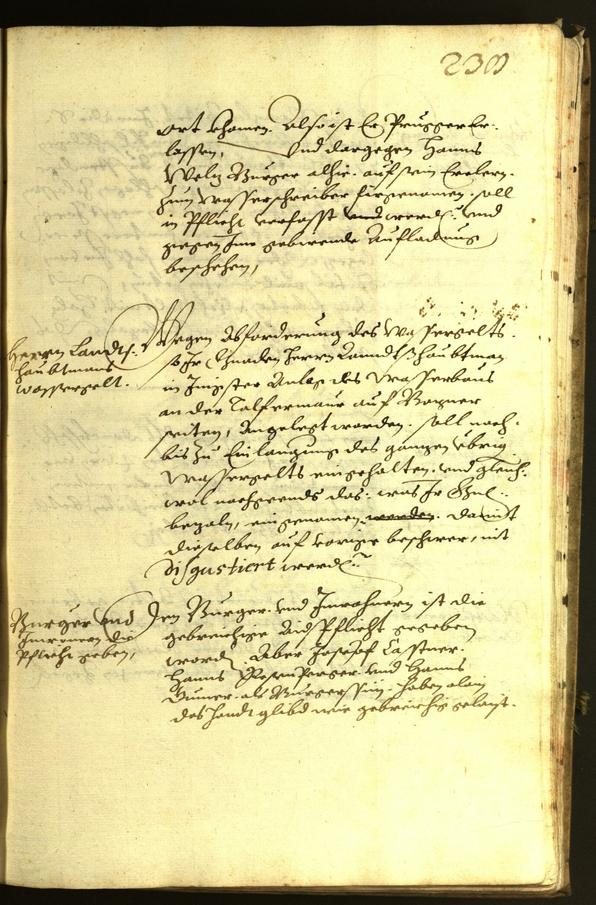 230
ort khomen. Also ist Er Prugger Er-
lassen, Und dargegen Hanns
Welz Burger alhie auf sein Erclern
zum Wasserschreiber fürgenomen. soll
in Pflicht verfasst und werden. Und
gegen Ime gebierende Aufladung
beschehen,
Herrn Landts-
haubtmans
wassergelt.
Wegen Abforderung des Wassergelts.
so Ir Gnaden Herrn Landtshaubtman
in Jungster Anlag des Wasserbaus
an der Talfermaur auf Bozner
seiten, Angelegt worden. soll noch
bis zu Einlangung des ganzen übrig
Wassergelts eingehalten. und gleich-
wol nachgeends das. was Ir Gnad.
bezaln, eingenomen worden. damit
dieselben auf vorige beschwer, nit
disgustiert werden.
Burger und
Inwoner die
Pflicht geben,
Den Burger. und Inwohnern ist die
gebreichige Aid Pflicht gegeben
worden. Aber Joseph Castner.
Hanns Perger und Hanns
als Burgers Sün. haben alein
das Handt glibd wie gebreichig gelaist.